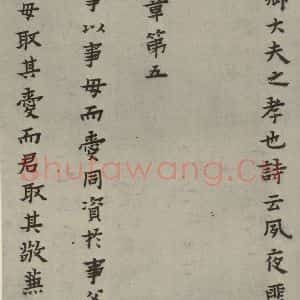 卿大夫之孝也詩云夙夜匪
章第五
事以事母而愛同資於事父
母取其愛而君取其敬兼
shufawang.cn